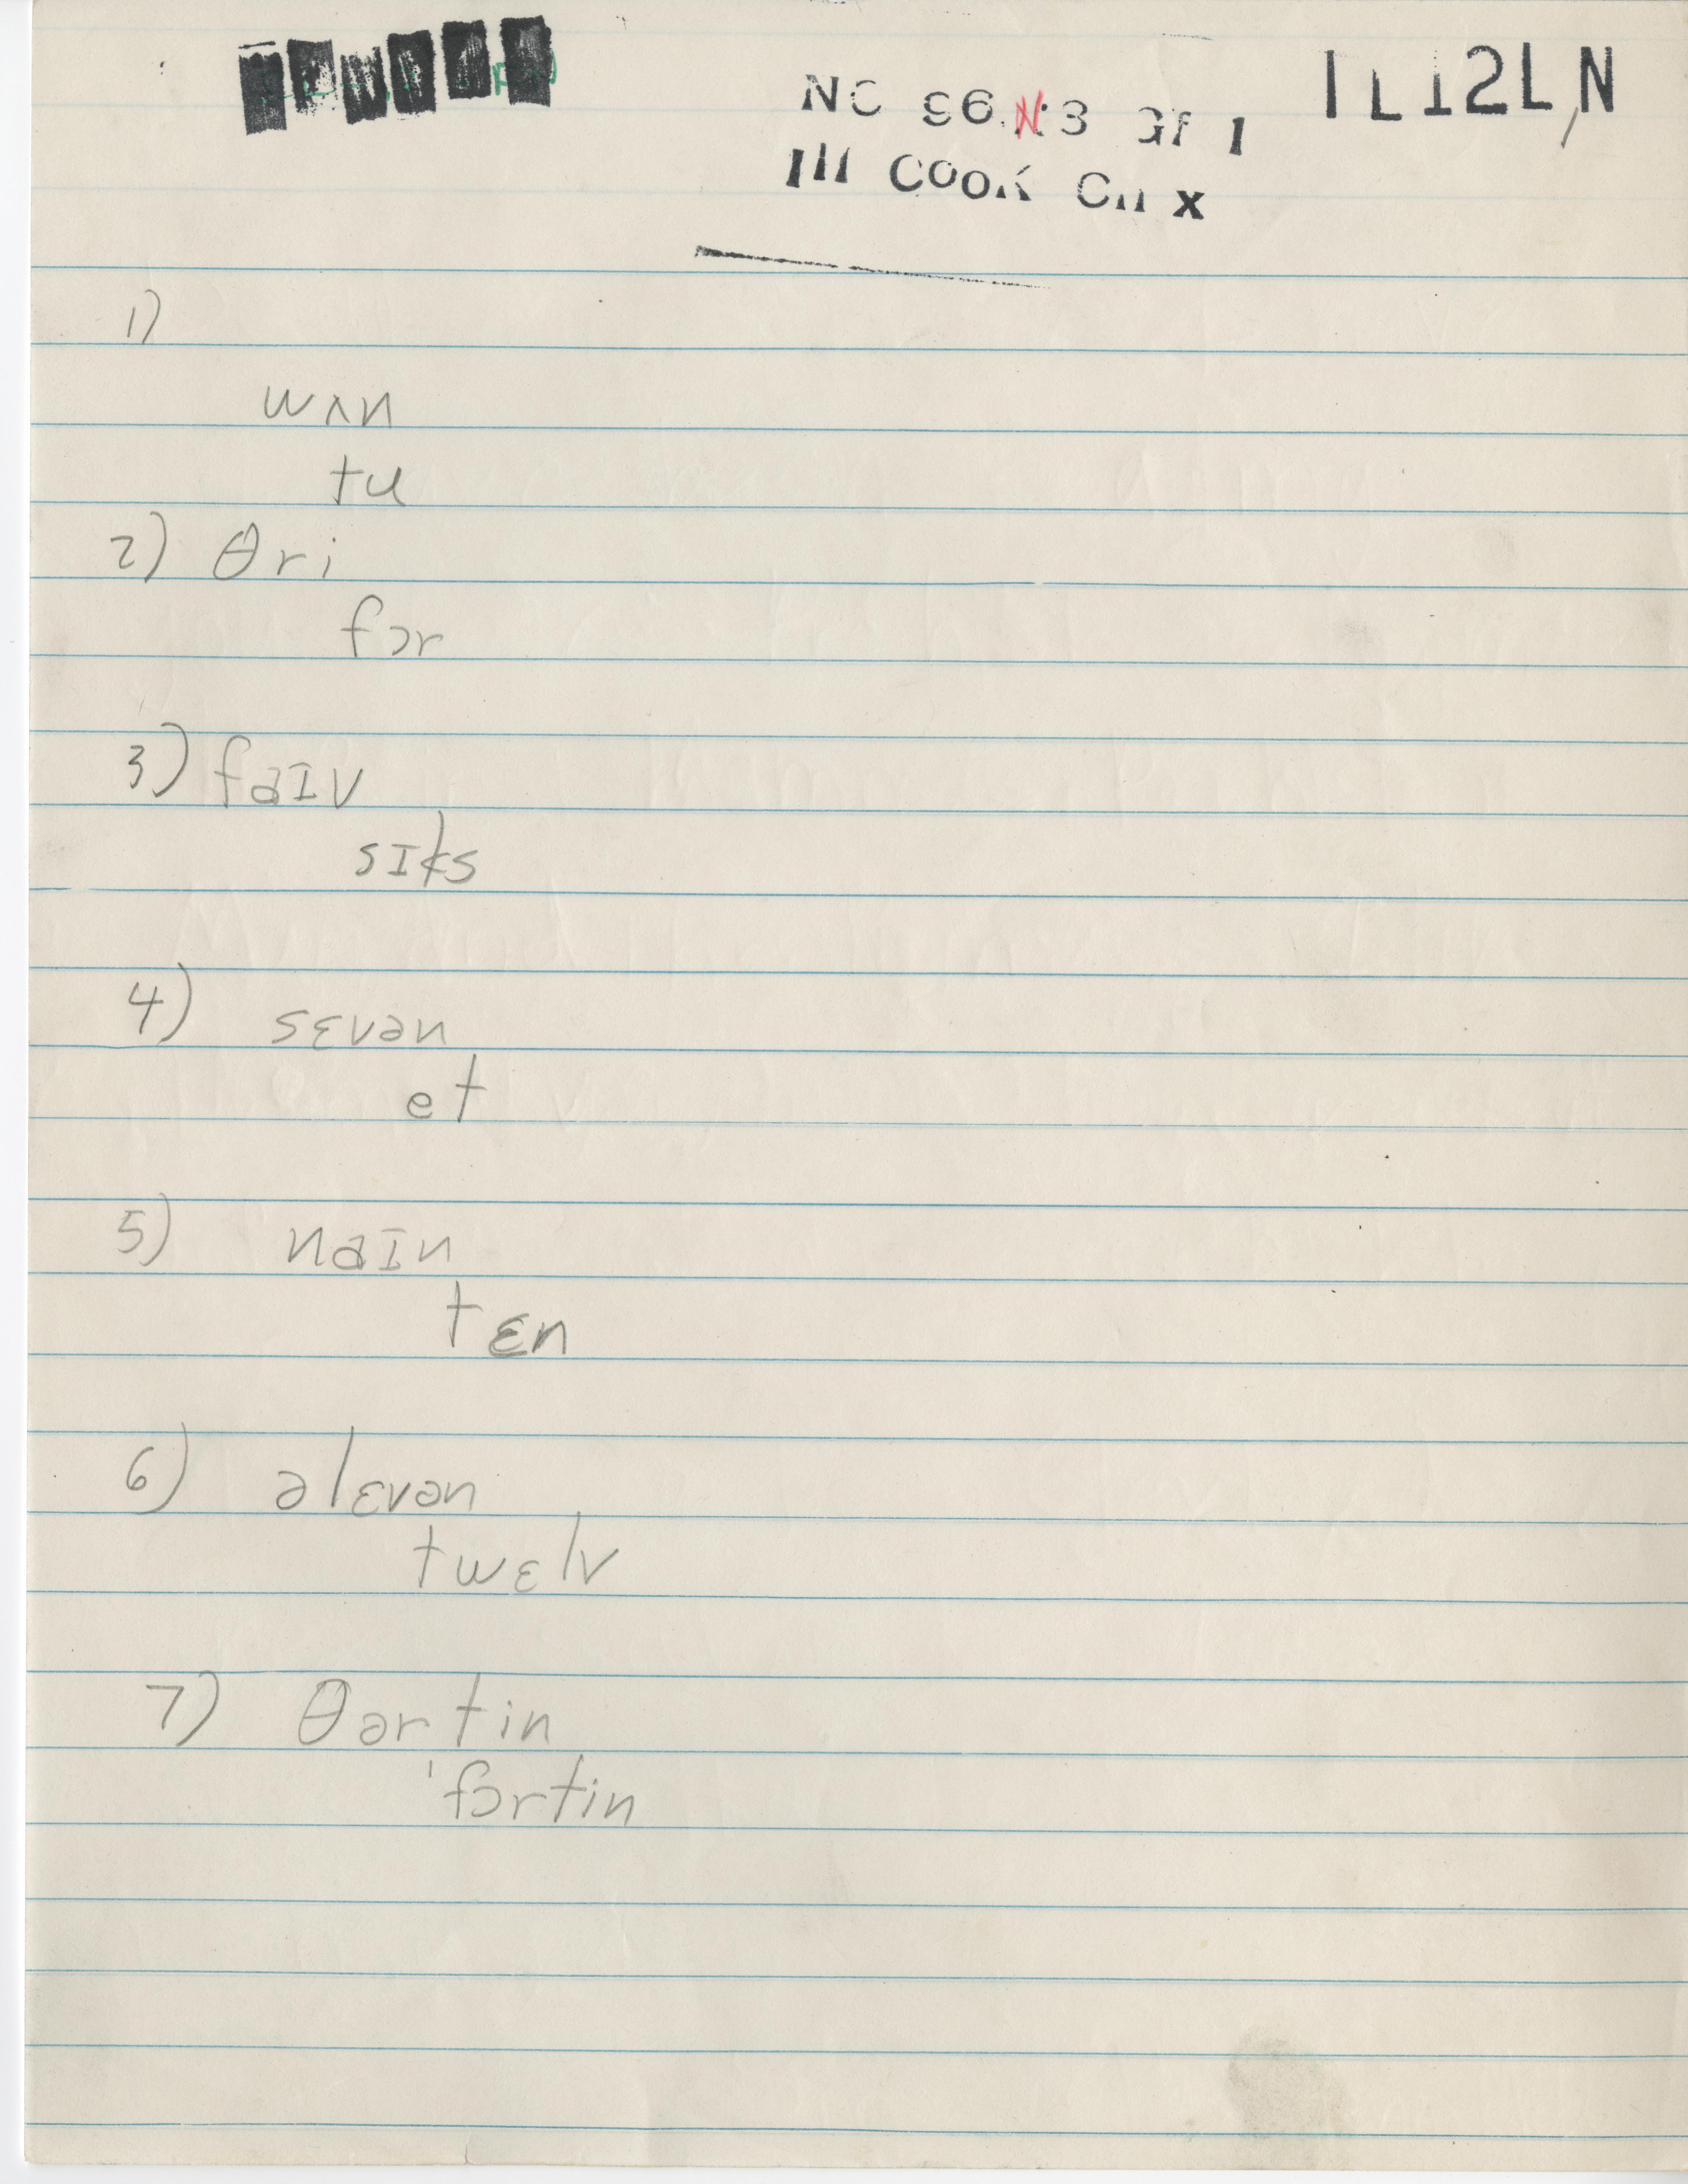 NC 96 N 3 Gf 1
Ill COOK Ch x
1)
wʌn
tu
2) θri
fɔr
3) faɪv
sɪks
4) sɛvən
et
5) naɪn
tɛn
6) əlɛvən
twɛlv
7) θərtin
'fɔrtin